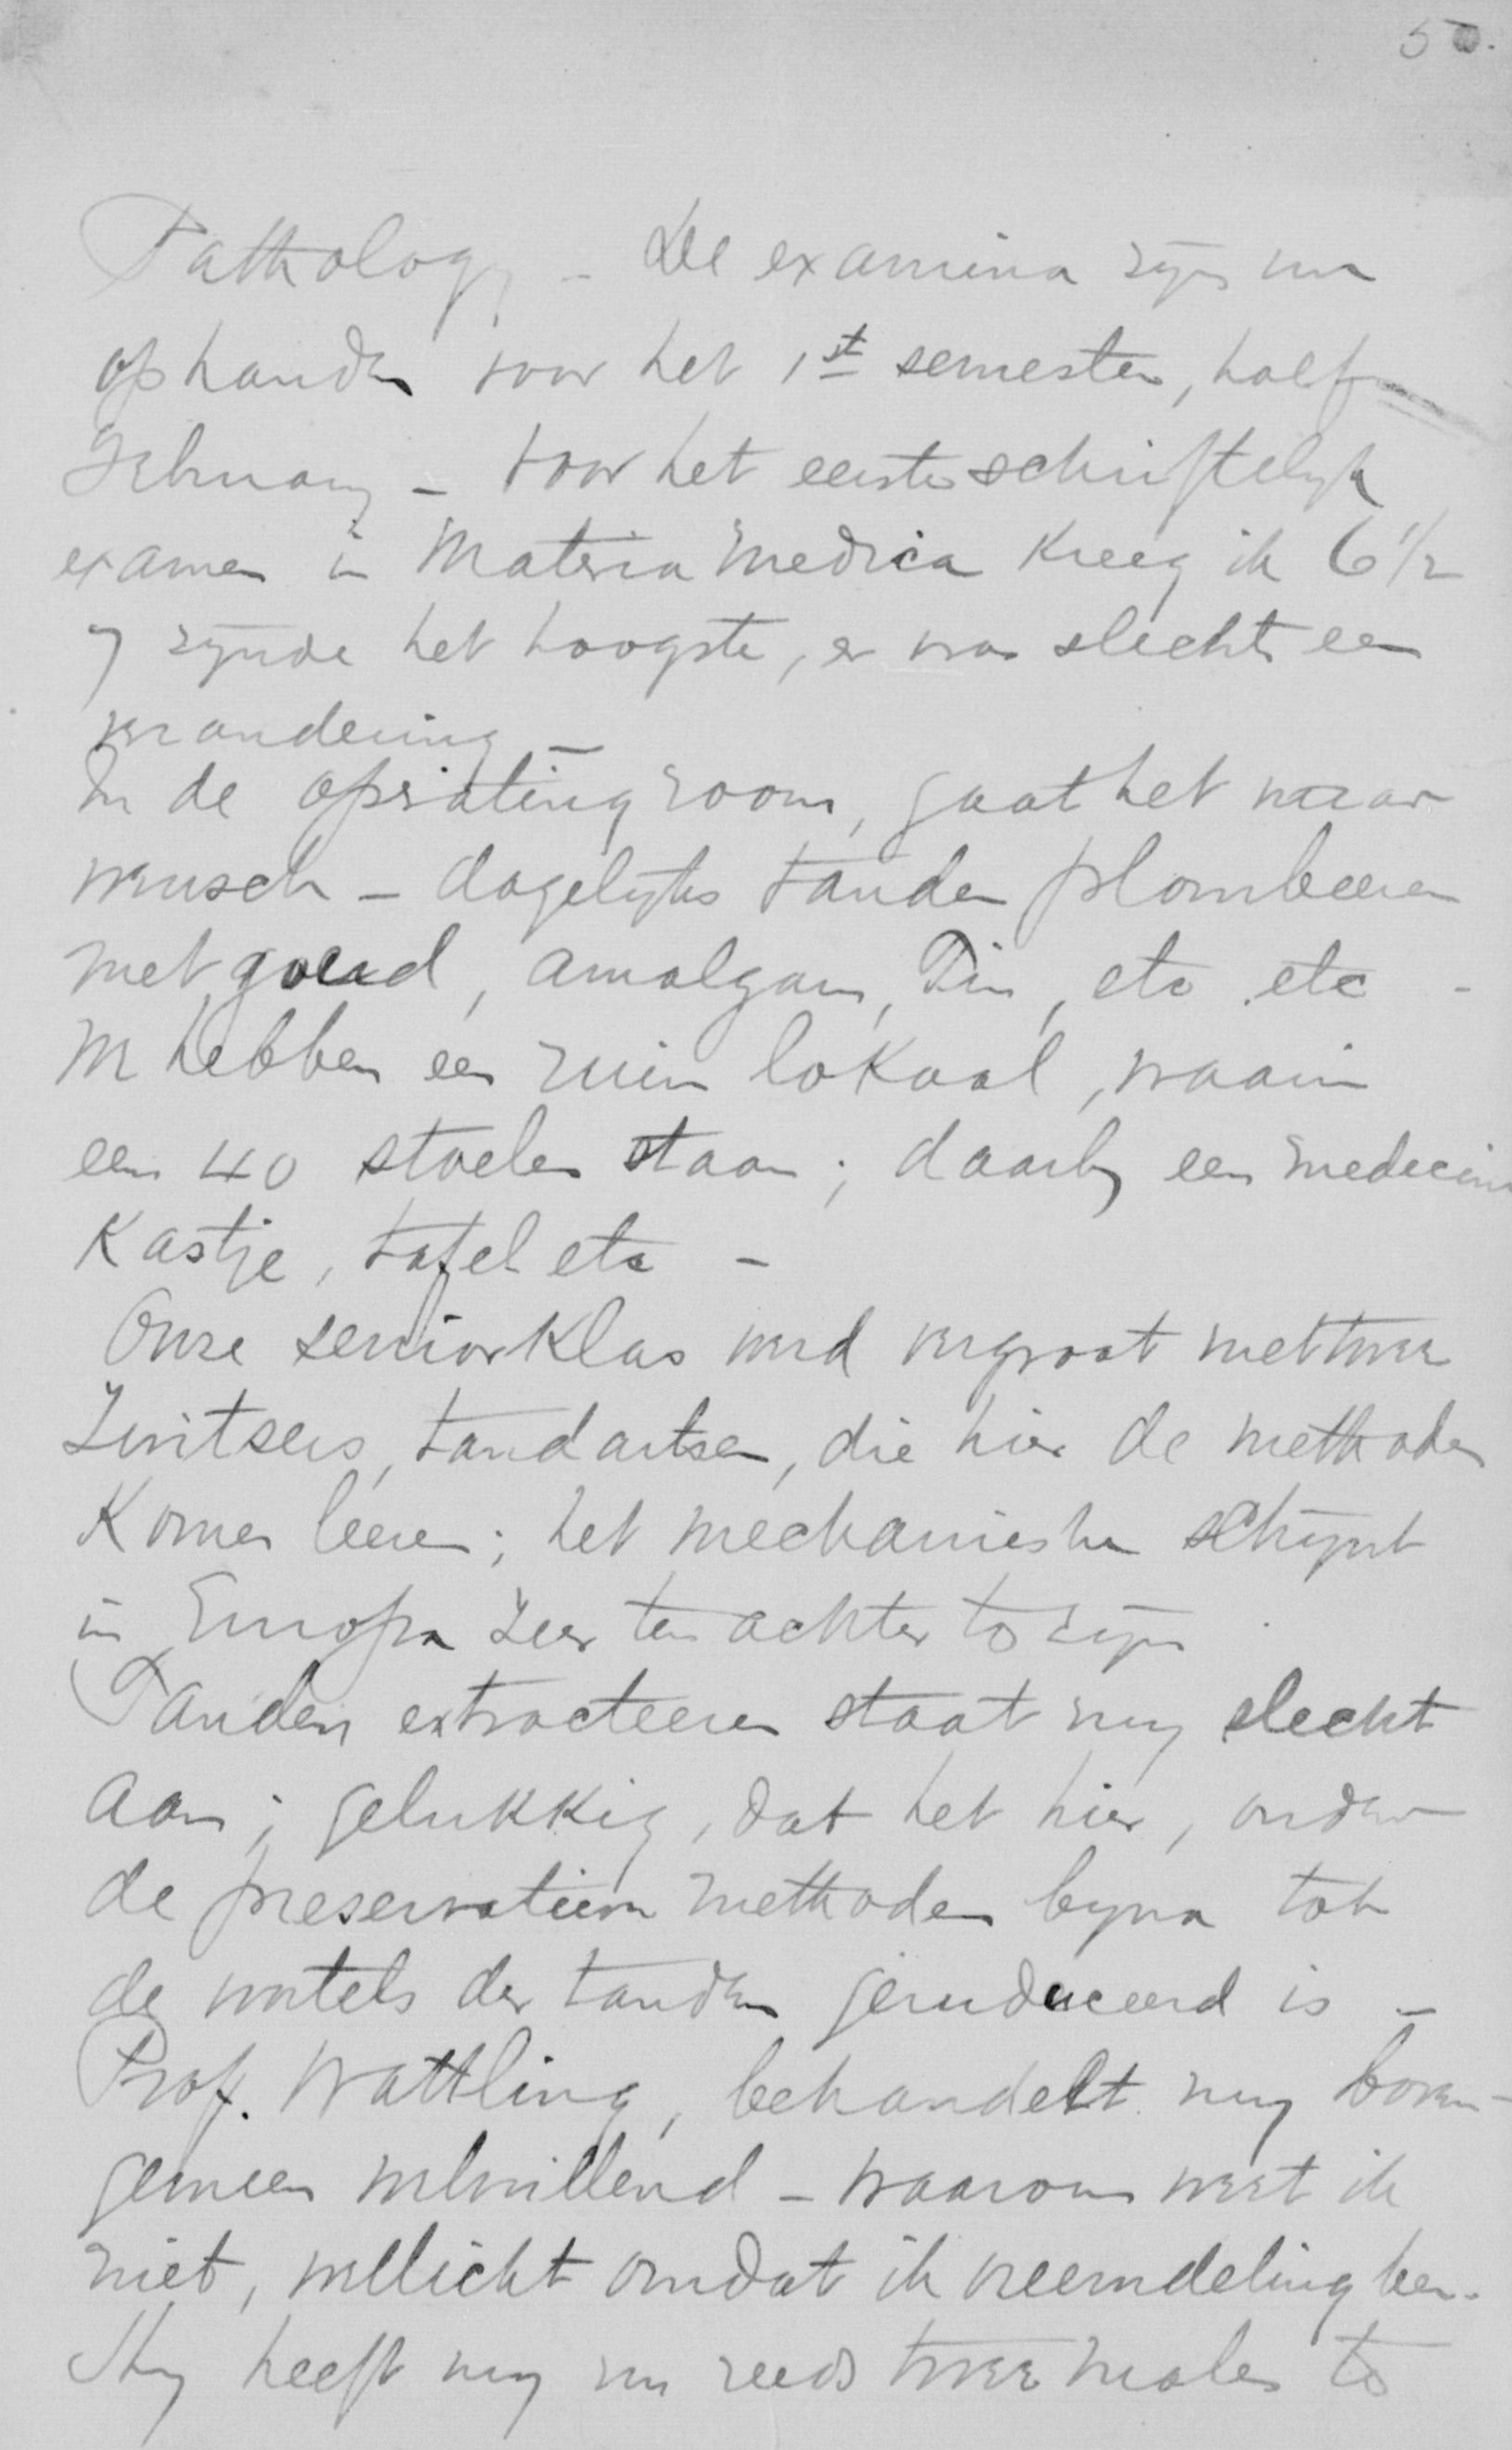 50.
Pathology - De examina zijn nu
ophanden voor het 1st semester, half
February - voor het eerste schriftelyk
examen in Materia Medica kreeg ik 6 1/2
7 zynde het hoogste, er was slechts een
verandering -
In de operating room, gaat het naar
wensch - dagelyks tanden plombeeren
met goud, amalgam, Tin, etc etc -
We hebben een ruim lokaal, waarin
een 40 stoelen staan; daarby een medecin
Kastje, tafel etc -
Onze seniorklas werd vergroot met twee
Zwitsers, tandartsen, die hier de methoden
Komen leeren; het mechanische schynt
in Europa zeer ten achter te zyn
Tanden extracteeren staat my slecht
aan; gelukkig, dat het hier, onder
de preservatieve methoden byna tot
de wortels der tanden gereduceerd is -
Prof. Wattling, behandelt my boven-
gemeen welwillend - waarom weet ik
niet, wellicht omdat ik vreemdeling ben.
Hy heeft my nu reeds twee malen te